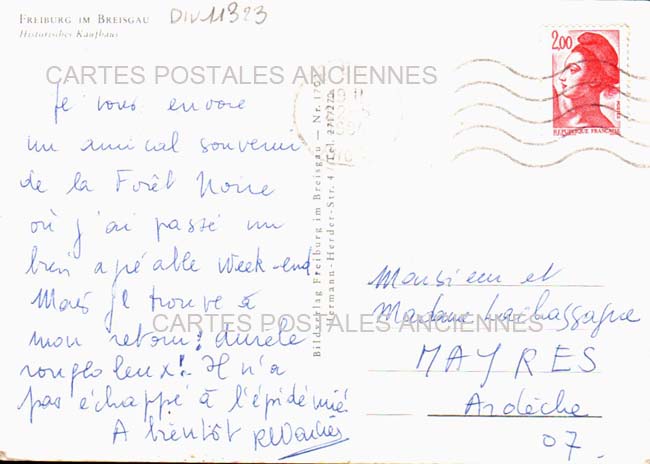 FREIBURG IM BREISGAU
Historisches Kaufhaus
DIV 11323
CARTES POSTALES ANCIENNES
Je vous envoie
un amical souvenir
de la Forêt Noire
où j'ai passé un
bien agréable week-end
Mais je trouve à
mon retour: Aurèle
rougeoleux! Il n'a
pas échappé à l'épidémie!
A bientôt
CARTES POSTALES ANCIENNES
Bildverlag Freiburg im Breisgau — Nr. 
Hermann-Herder-Str. 4 / Tel.
2,00
POSTES
REPUBLIQUE FRANÇAISE
Monsieur et
Madame
MAYRES
Ardèche
07.